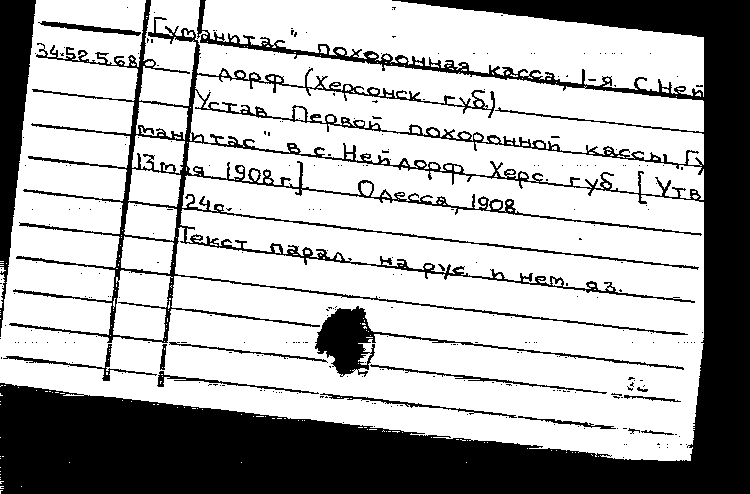 "Гуманитас", похоронная касса, 1-я с. Ней
34.52.5.68 о.
дорф (Херсонск. губ).
Устав Первой похоронной кассы „Гу
манитас" в с. Нейдорф, Херс. губ. [Утв
13 мая 1908 г.] Одесса, 1908
24с.
Текст парал. на рус. и нем. яз.
32